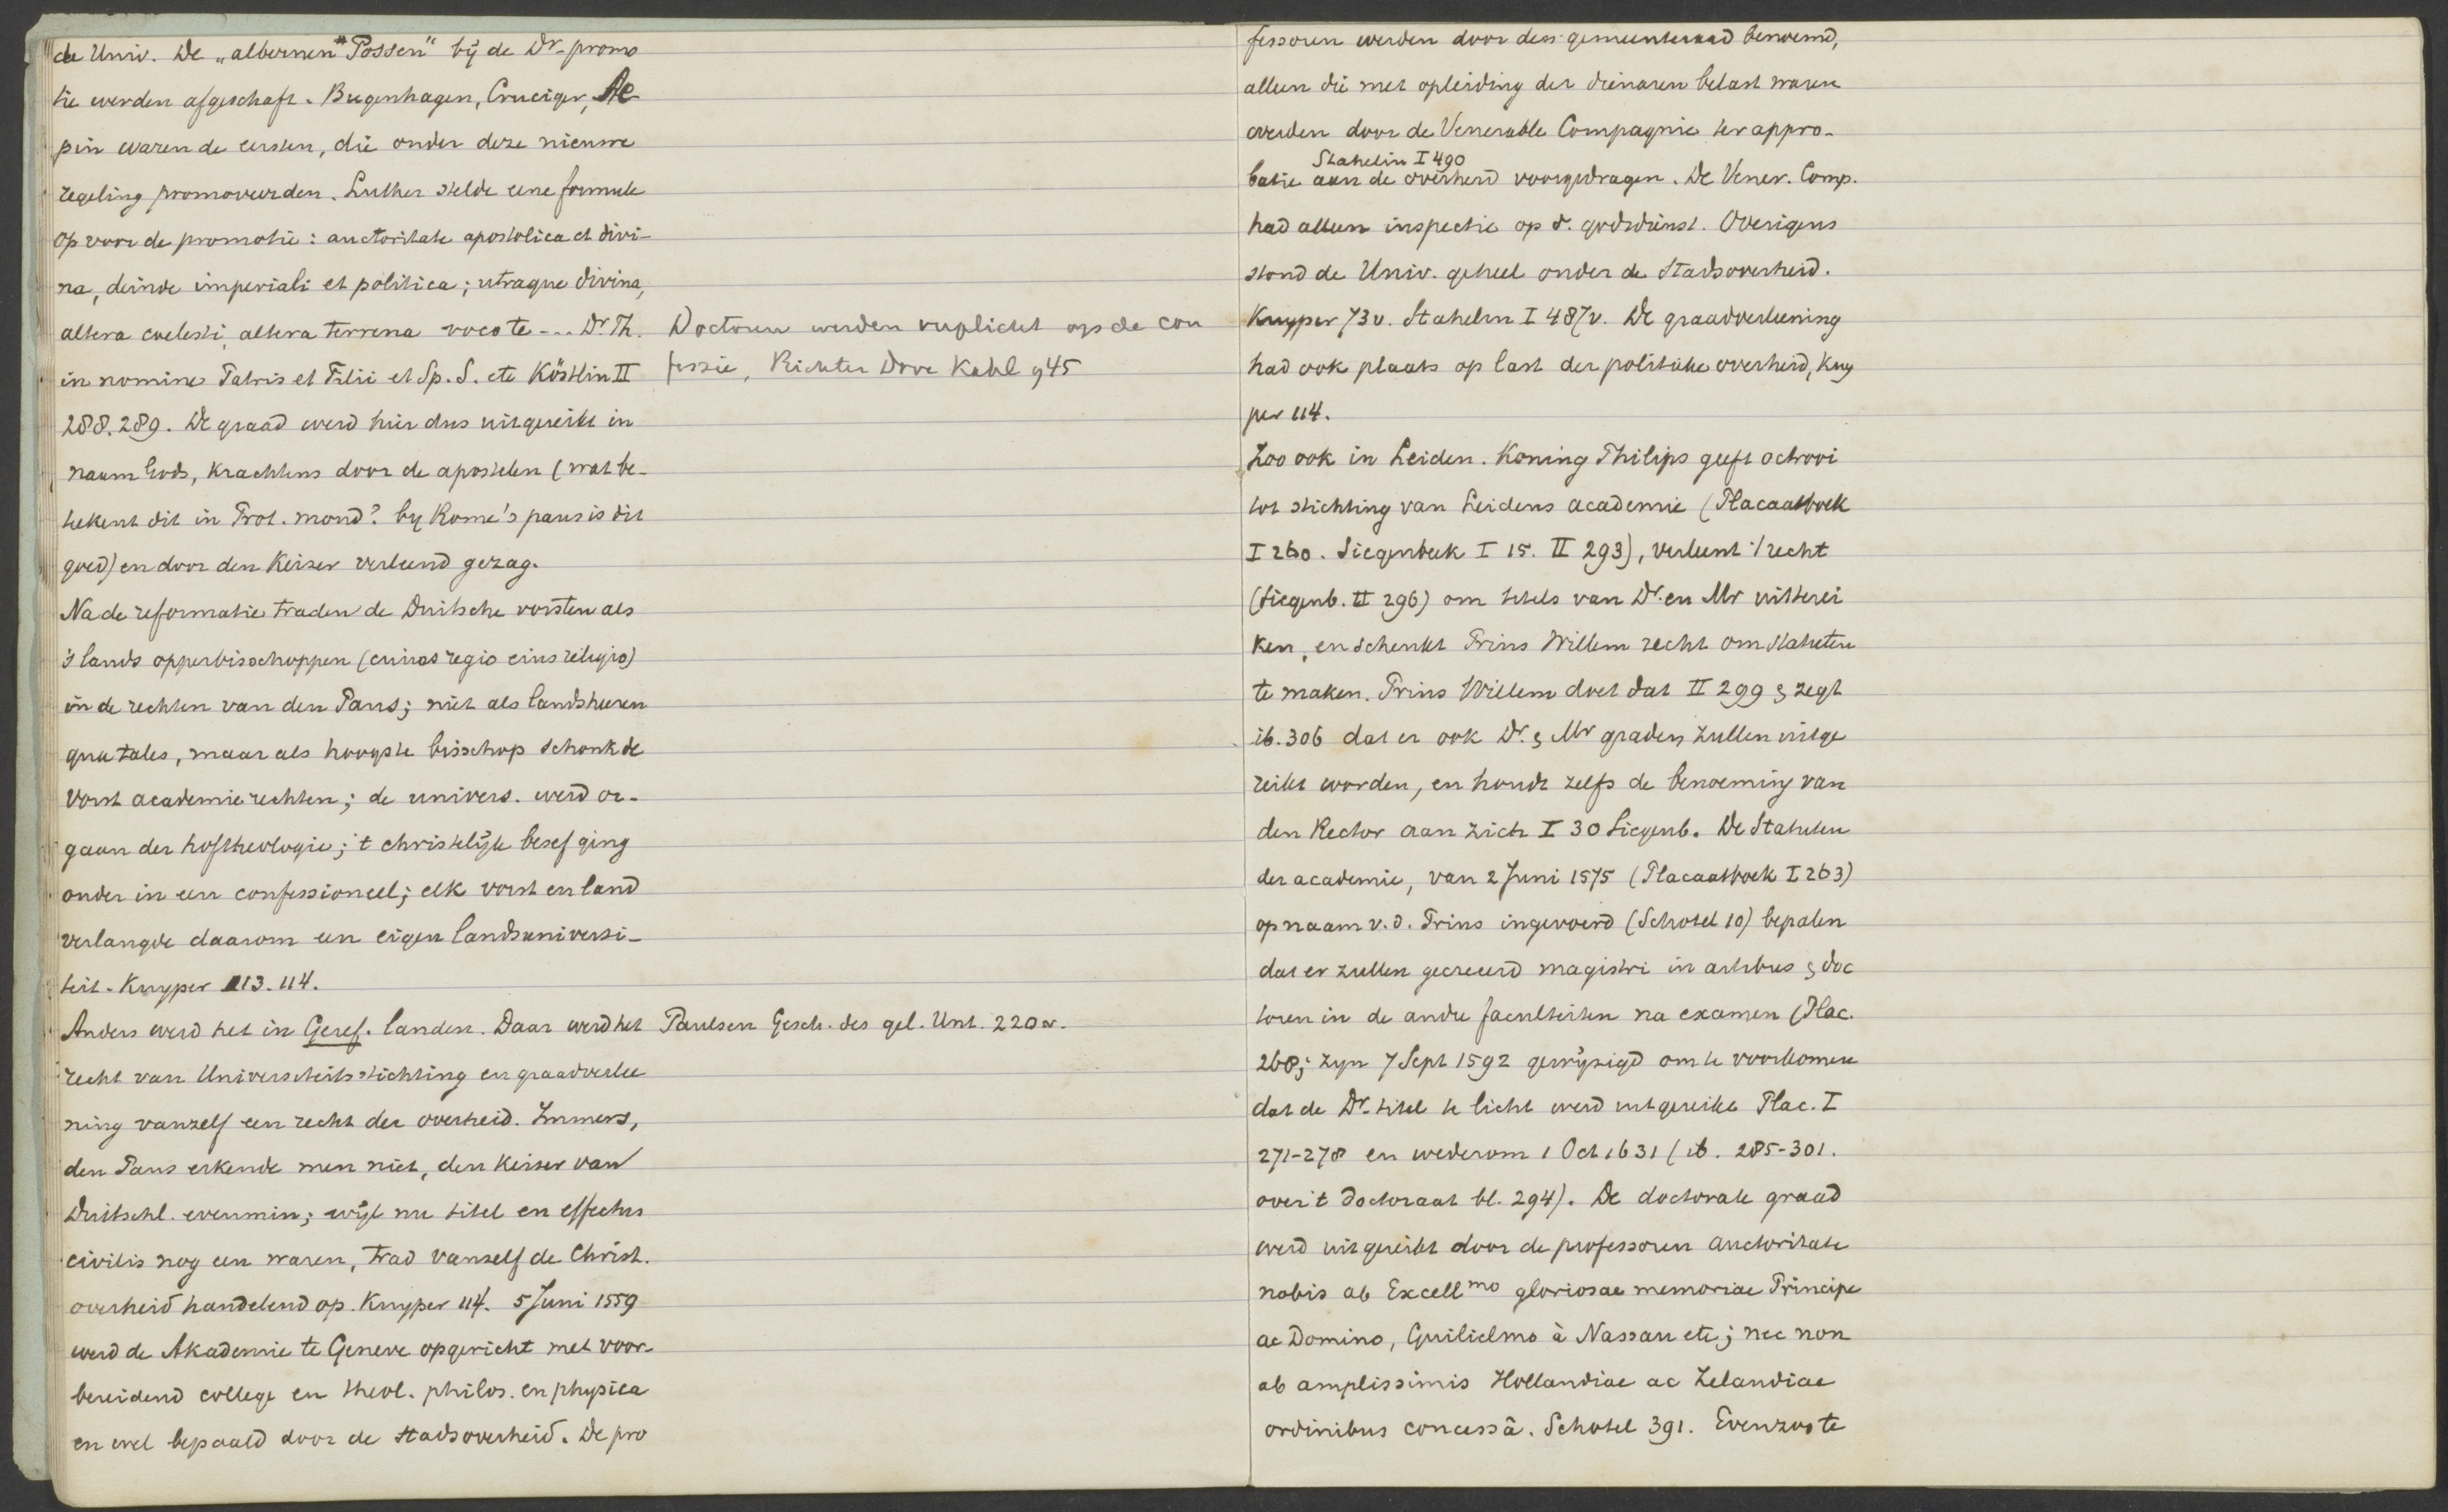 de Univ. De „albernen Possen" bij de Dr-promo
tie werden afgeschaft. Bugenhagen, Cruciger, Ae
pin waren de eersten, die onder deze nieuwe
regeling promoveerden. Luther stelde eene formule
op voor de promotie: auctoritate apostolica et divi-
na, deinde imperiali et politica; utraque divina,
altera coelesti, altera terrena voco te ... Dr Th.
in nomine Patris et Filii et Sp. S. etc Köstlin II
288.289. De graad werd hier dus uitgereikt in
naam Gods, krachtens door de apostelen (wat be-
tekent dit in Prot. mond? by Rome's paus is dit
goed) en door den Keizer verleend gezag.
Na de reformatie traden de Duitsche vorsten als
's lands opperbisschoppen (cuius regio eius religio)
in de rechten van den Paus; niet als landsheeren
qua tales, maar als hoogste bisschop schonk de
vorst academierechten; de univers. werd or-
gaan der hoftheologie; 't christelijk besef ging
onder in een confessioneel; elk vorst en land
verlangde daarom een eigen landsuniversi-
teit. Kuyper 113.114.
Anders werd het in Geref. landen. Daar werd het
recht van Universiteitsstichting en graadverlee
ning vanzelf een recht der overheid. Immers,
den Paus erkende men niet, den Keizer van
Duitschl. evenmin; wijl nu titel en effectus
civilis nog een waren, trad vanzelf de Christ.
overheid handelend op. Kuyper 114. 5 Juni 1559
werd de Akademie te Geneve opgericht met voor-
bereidend college en theol. philos. en physica
en wel bepaald door de stadsoverheid. De pro
Doctoren werden verplicht op de con
fessie, Richter Dove Kahl 945
Paulsen Gesch. des gel. Unt. 220 v.
fessoren werden door den gemeenteraad benoemd,
alleen die met opleiding der dienaren belast waren
werden door de Venerable Compagnie ter appro-
Stahelin I 490
batie aan de overheid voorgedragen. De Vener. Comp.
had alleen inspectie op d. godsdienst. Overigens
stond de Univ. geheel onder de Stadsoverheid.
Kuyper 73v. Stahelin I 487v. De graadverleening
had ook plaats op last der politieke overheid, Kuy
per 114.
Zoo ook in Leiden. Koning Philips geeft octrooi
tot stichting van Leidens academie (Placaatboek
I 260. Siegenbeek I 15. II 293), verleent 't recht
(Siegenb. II 296) om titels van Dr. en Mr uit te rei
ken, en schenkt Prins Willem recht om statuten
te maken. Prins Willem doet dat II 299 & zegt
ib. 306 dat er ook Dr. & Mr graden zullen uitge
reikt worden, en houdt zelfs de benoeming van
den Rector aan zich I 30 Siegenb. De Statuten
der academie, van 2 Juni 1575 (Placaatboek I 263)
op naam v.d. Prins ingevoerd (Schotel 10) bepalen
dat er zullen gecreeerd magistri in artibus & doc
toren in de andre faculteiten na examen (Plac.
268; zyn 7 Sept 1592 gewijzigd om te voorkomen
dat de Dr. titel te licht werd uitgereikt Plac. I
271-278 en wederom 1 Oct 1631 (ib. 285-301.
over 't doctoraat bl. 294). De doctorale graad
werd uitgereikt door de professoren auctoritate
nobis ab Excellmo gloriosae memoriae Principe
ac Domino, Guilielmo à Nassau etc; nec non
ab amplissimis Hollandiae ac Zelandiae
ordinibus concessâ. Schotel 391. Evenzoo te